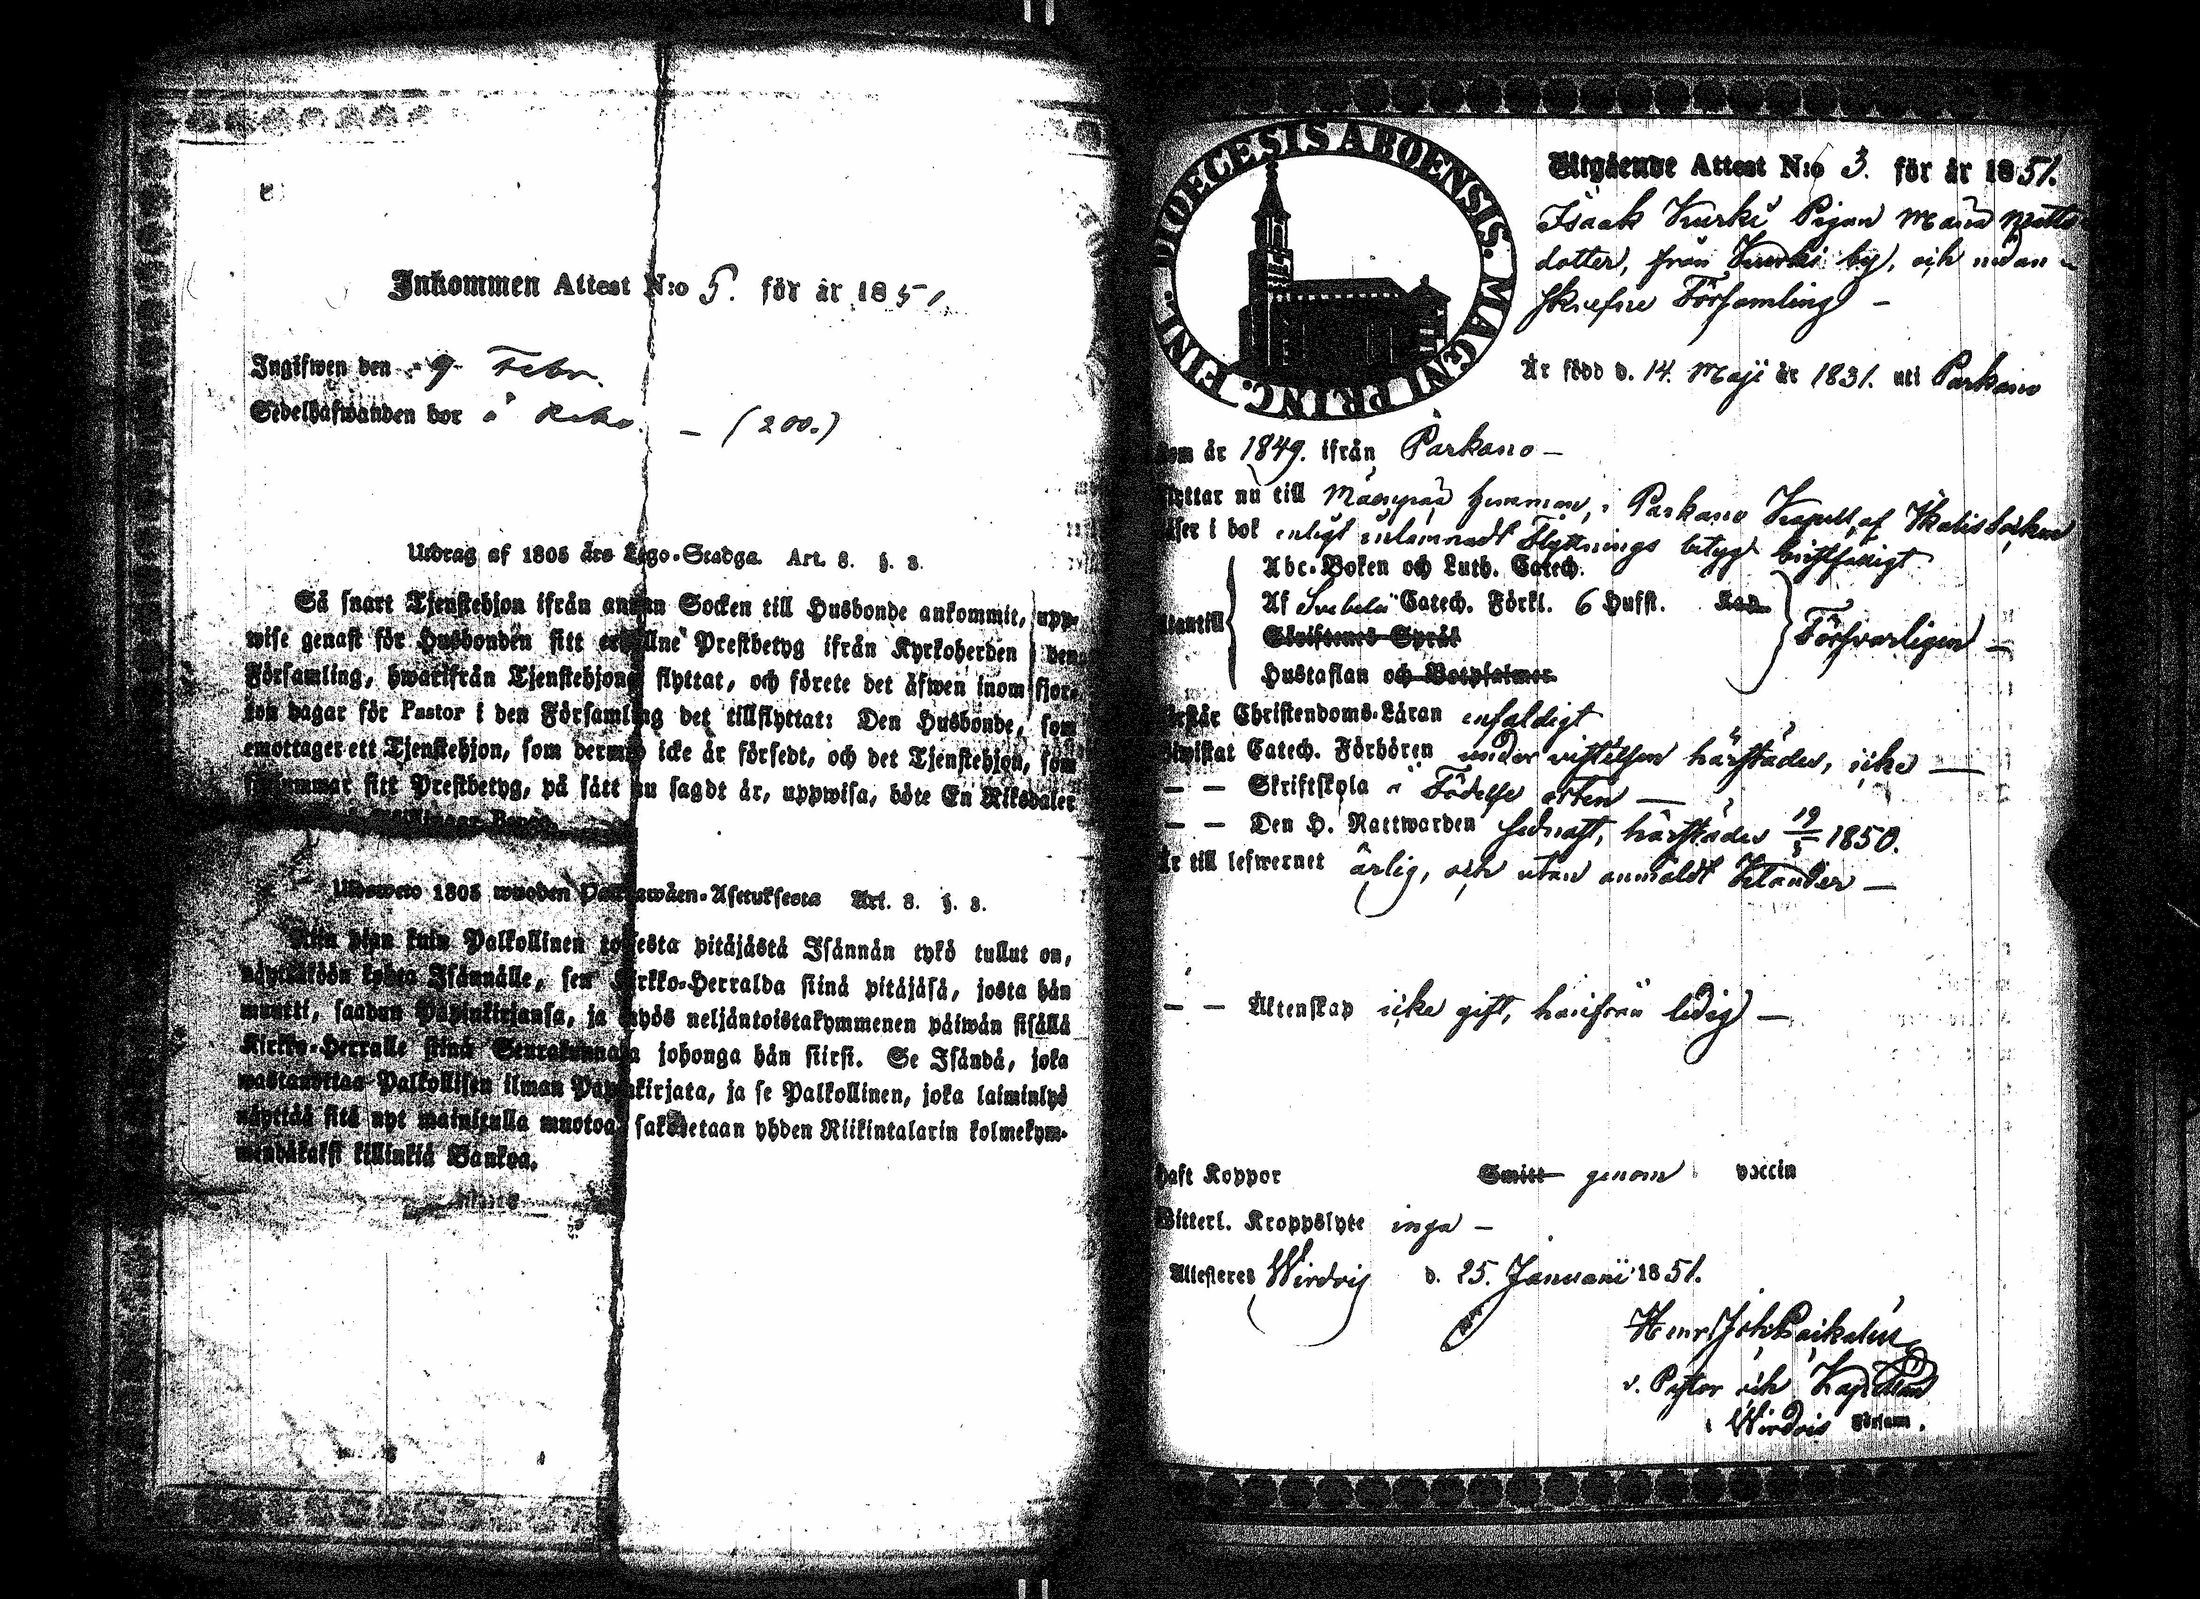 Inkommen Attest N:o 5. för år 1851.
Ingifwen den 9 Febr.
Sedelhafwanden bor å (200.)
Utdrag af 1805 års Lego-Stadga. Art. 8. §. 3.
Så snart Tjenstehjon ifrån annan Socken till Husbonde ankommit, upp-
wise genast för Husbonden sitt erhållne Prestbetyg ifrån Kyrkoherden i den
Församling, hwarifrån Tjenstehjonet flyttat, och förete det äfwen inom fjor-
ton dagar för Pastor i den Församling det tillflyttat: Den Husbonde, som
emottager ett Tjenstehjon, som dermed icke är försedt, och det Tjenstehjon, som
försummar sitt Prestbetyg, på sätt nu sagdt är, uppwisa, böte En Riksdaler
Banco.
Ulosweto 1805 wuoden Palkkawäen-Asetuksesta Art. 8. §. 3.
Niin pian kuin Palkollinen toisesta pitäjästä Isännän tykö tullut on,
näyttäköön kohta Isännälle, sen Kirkko-Herralda siinä pitäjäsä, josta hän
muutti, saadun Papinkirjansa, ja myös neljäntoistakymmenen päiwän sisällä
Kirkko-Herralle siinä Seurakunnasa johonga hän siirsi. Se Isändä, joka
wastanottaa Palkollisen ilman Papinkirjata, ja se Palkollinen, joka laiminlyö
näyttää sitä nyt mainitulla muotoa, sakotetaan yhden Riikintalarin kolmekym-
mendäkaksi killinkiä Bankoa.
DIOECESIS ABOENSIS. MAGNI PRINC. FINL.
Utgående Attest N:o 3. för år 1851.
Isaak Kurki Pigan Maria Matts-
dotter, från Kurki by, och nedan-
skrefne Församling –
Är född d. 14. Maji år 1831. uti Parkano
kom år 1849. ifrån Parkano –
flyttar nu till hemman, i Parkano Kapell af Ikalis Socken
läser i bok enligt inlemnadt Flyttnings betyg
Abc-Boken och Luth. Catech.
Af Svebelii Catech. Förkl. 6 Hufst.
utantill Skriftenes Språk Försvarligen –
Hustaflan och Botpsalmer
förstår Christendoms-Läran enfaldigt
bewistat Catech. Förhören under vistelsen härstädes, icke —
– – Skriftskola i Födelse orten —
– – Den H. Nattwarden sednast, härstädes 19/5 1850.
Är till lefwernet ärlig, och utan anmäldt Klander –
– – Äktenskap icke gift, härifrån ledig –
haft Koppor Smitt genom vaccin
Witterl. Kroppslyte inga –
Attesteres Wirdois d. 25. Januarii 1851.
Henr. Joh.
v. Pastor och Kapellan
i Wirdois Försam.